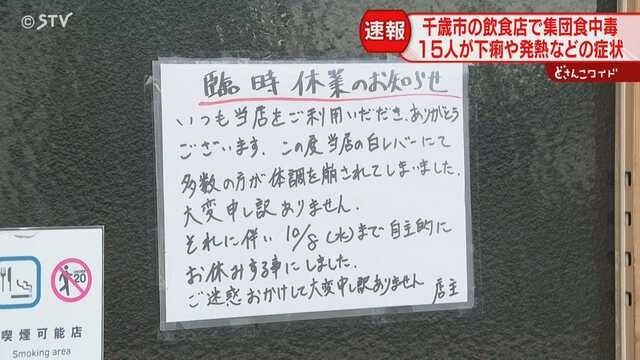 ©STV
速報
千歳市の飲食店で集団食中毒
15人が下痢や発熱などの症状
どさんこワイド
臨時休業のお知らせ
いつも当店をご利用いただき、ありがとう
ございます、この度当店の白レバーにて
多数の方が体調を崩されてしまいました。
大変申し訳ありません。
それに伴い10/8(水)まで自主的に
お休みする事にしました。
ご迷惑おかけして大変申し訳ありません 店主
20
喫煙可能店
Smoking area